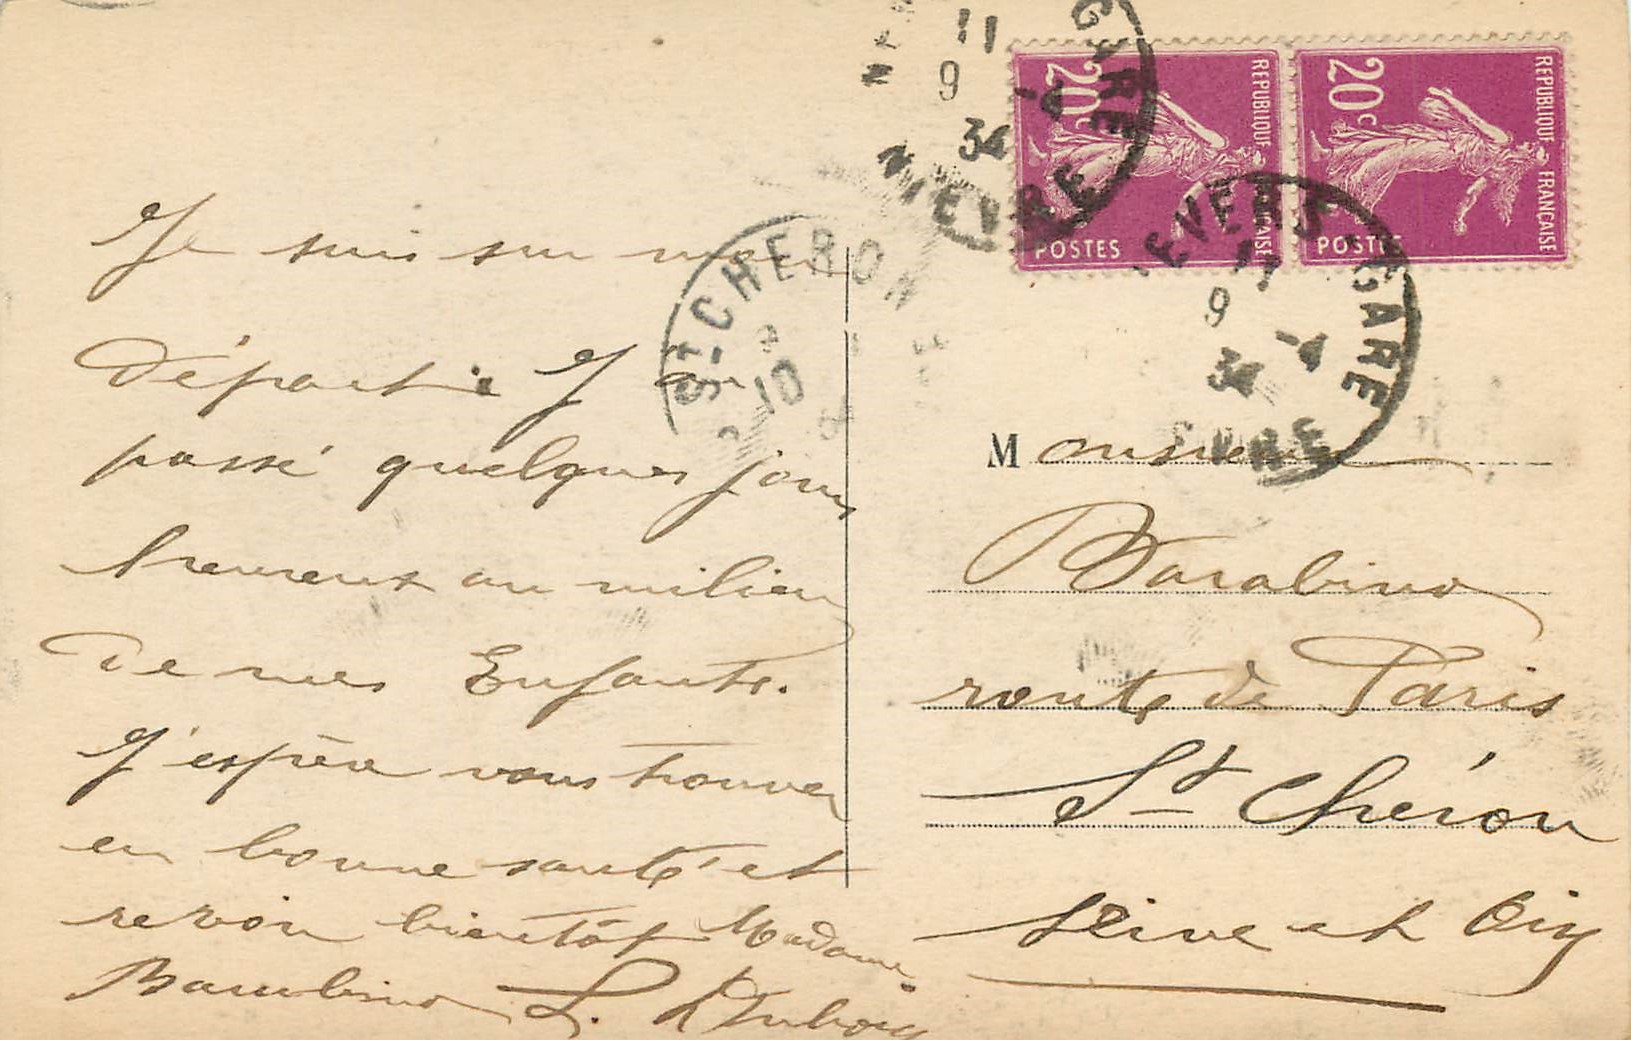 Je suis sur mon
départ. J'ai
passé quelques jours
heureux au milieu
de mes Enfants.
J'espère vous trouver
en bonne santé et
revoir bientôt Madame
L.
NIEVRE
GARE
11
9 -4
34
REPUBLIQUE FRANÇAISE
20c
POSTES
REPUBLIQUE FRANÇAISE
20c
POSTES
NEVERS-GARE
11
9 -4
34
NIEVRE
ST-CHERON
10
Monsieur
Barabino
route de Paris
St Chéron
Seine et Oise